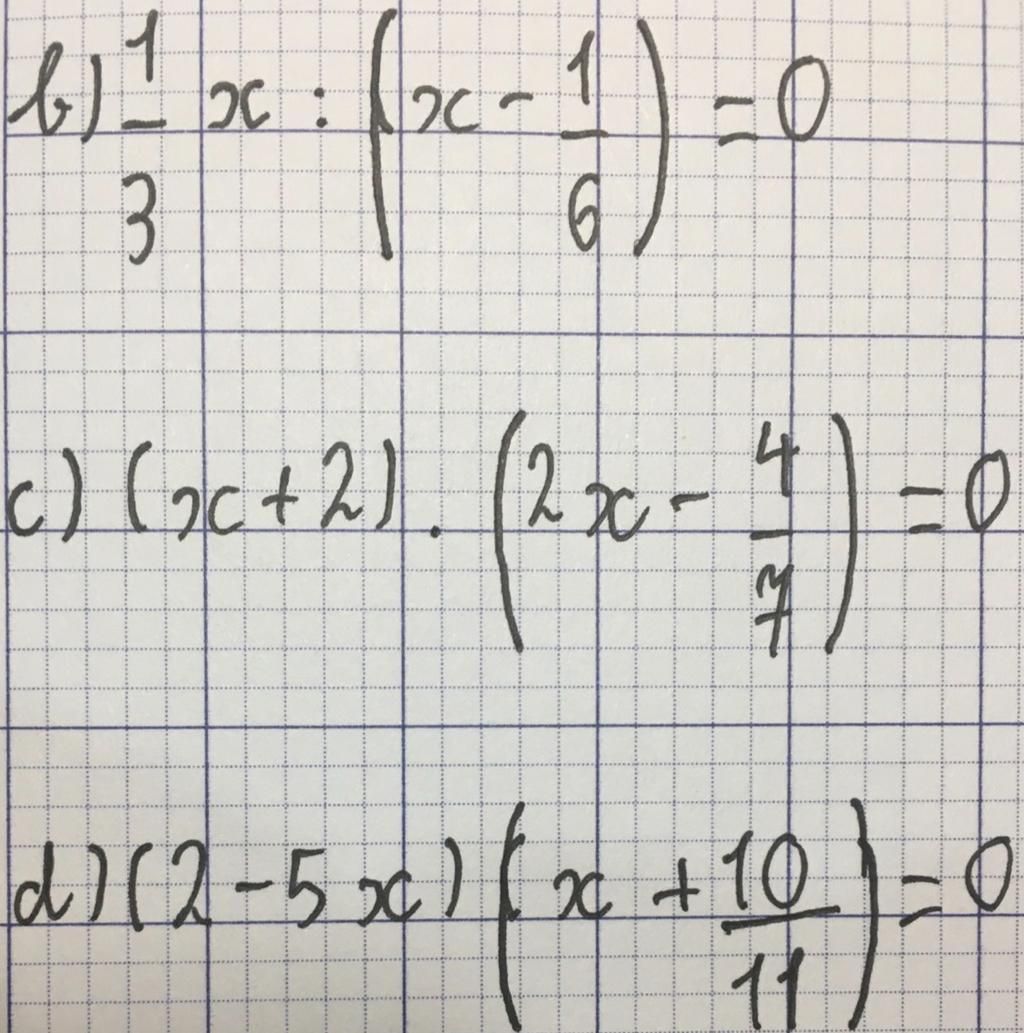 b) 1/3 x : (x - 1/6) = 0
c) (x + 2) . (2x - 4/7) = 0
d) (2 - 5x) (x + 10/11) = 0